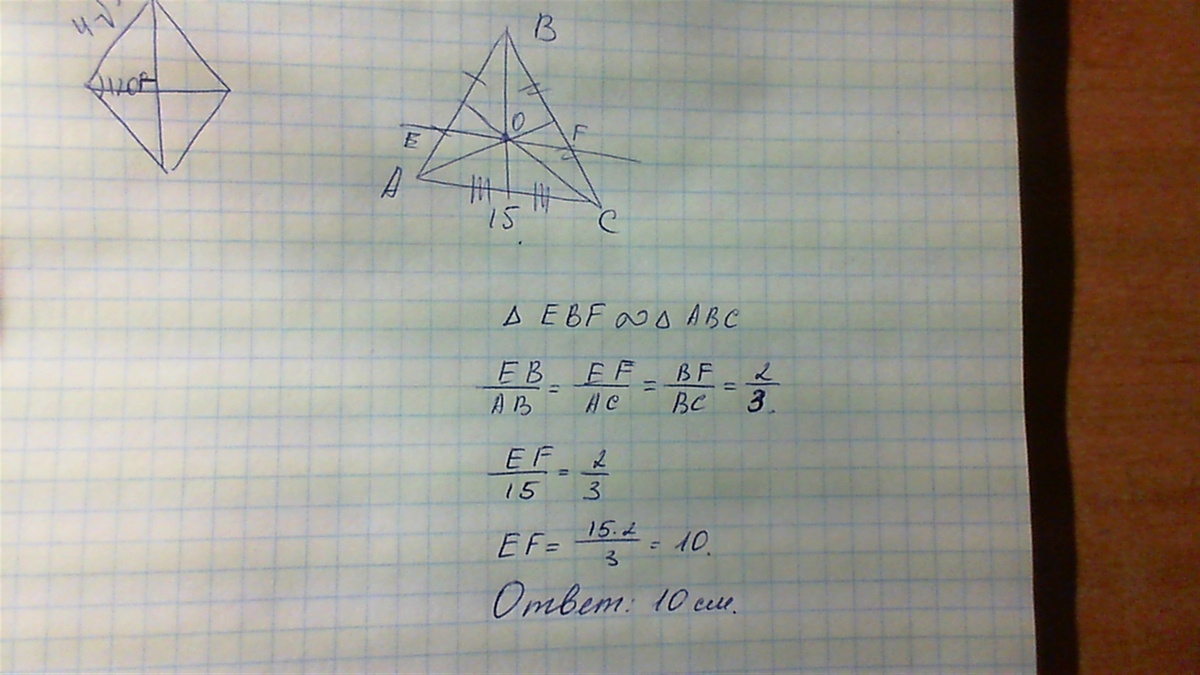 4√
120°
B
O
E
F
A
15
C
Δ EBF ∾ Δ ABC
EB/AB = EF/AC = BF/BC = 2/3.
EF/15 = 2/3
EF = 15·2/3 = 10.
Ответ: 10 см.